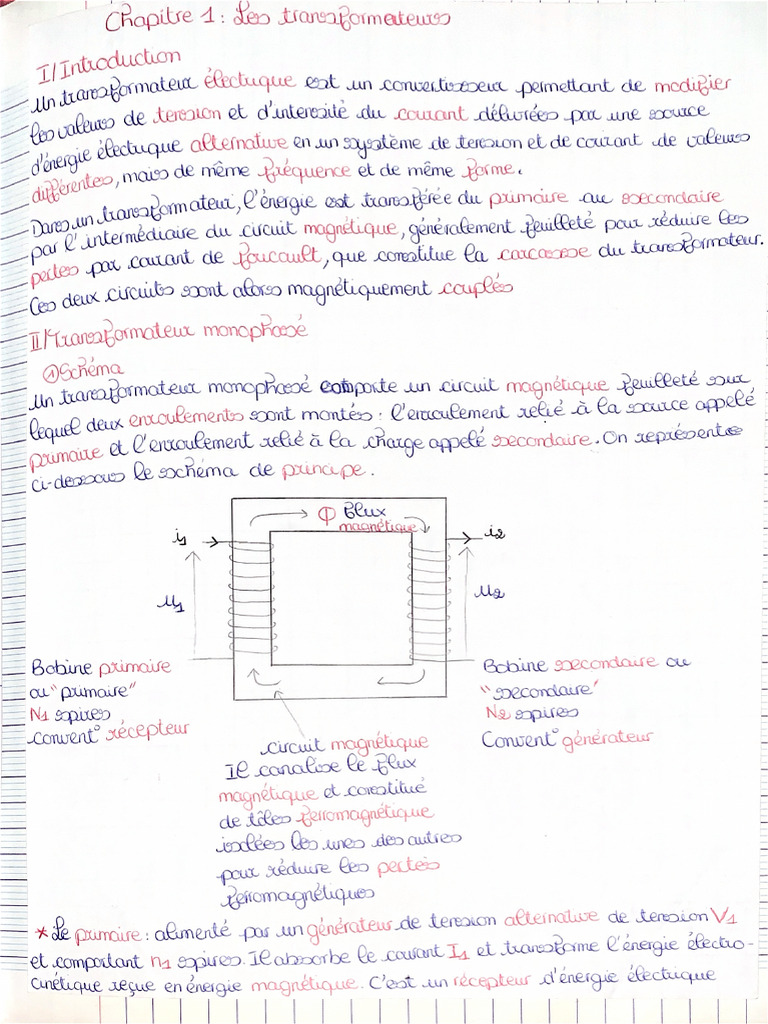 Chapitre 1 : Les transformateurs
I/ Introduction
Un transformateur électrique est un convertisseur permettant de modifier
les valeurs de tension et d'intensité du courant délivrées par une source
d'énergie électrique alternative en un système de tension et de courant de valeurs
différentes, mais de même fréquence et de même forme.
Dans un transformateur, l'énergie est transférée du primaire au secondaire
par l'intermédiaire du circuit magnétique, généralement feuilleté pour réduire les
pertes par courant de foucault, que constitue la carcasse du transformateur.
Ces deux circuits sont alors magnétiquement couplés
II/ Transformateur monophasé
① Schéma
Un transformateur monophasé comporte un circuit magnétique feuilleté sur
lequel deux enroulements sont montés : l'enroulement relié à la source appelé
primaire et l'enroulement relié à la charge appelé secondaire. On représente
ci-dessous le schéma de principe.
Φ flux
magnétique
i1
i2
u1
u2
Bobine primaire
ou "primaire"
N1 spires
Convent° récepteur
Bobine secondaire ou
"secondaire"
N2 spires
Convent° générateur
circuit magnétique
Il canalise le flux
magnétique et constitué
de tôles ferromagnétique
isolées les unes des autres
pour réduire les pertes
ferromagnétiques
* Le primaire : alimenté par un générateur de tension alternative de tension V1
et comportant n1 spires. Il absorbe le courant I1 et transforme l'énergie électro-
cinétique reçue en énergie magnétique. C'est un récepteur d'énergie électrique